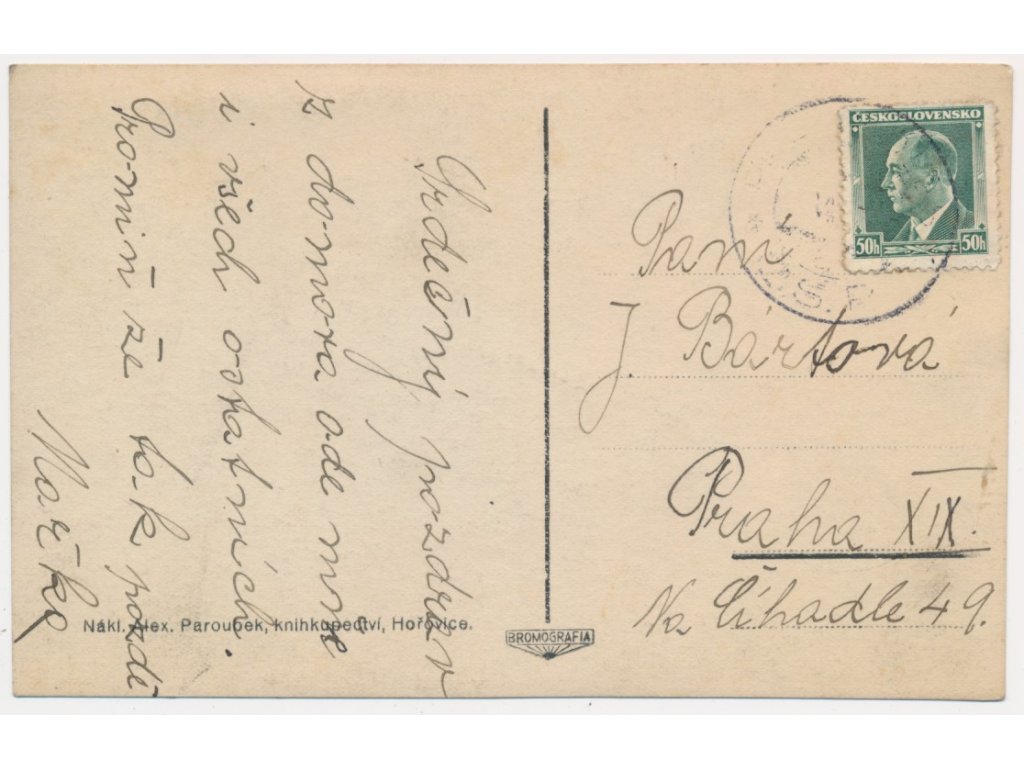 Srdečný pozdrav
z domova ode mne
i všech ostatních.
Promiň že tak pozdě
Mařka
ČESKOSLOVENSKO
50h 50h
Paní
J. Bártová
Praha XIX.
Na Číhadle 49.
Nákl. Alex. Paroubek, knihkupectví, Hořovice.
BROMOGRAFIA